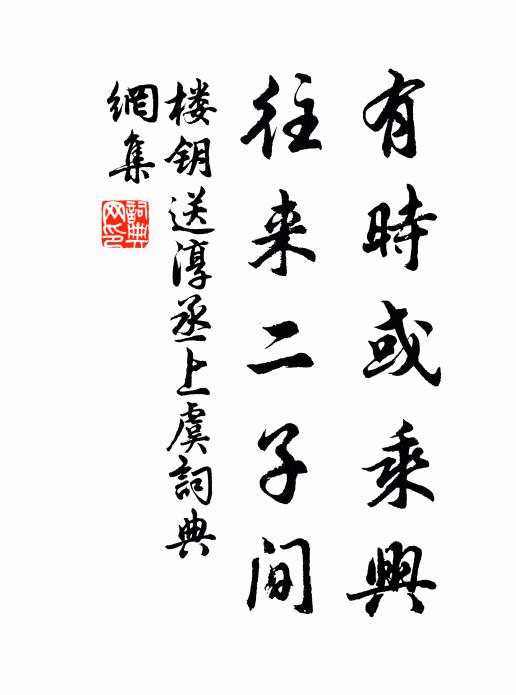 有時或乘興
往来二子间
楼钥送淳丞上虞詞典
網集
詞典
网印